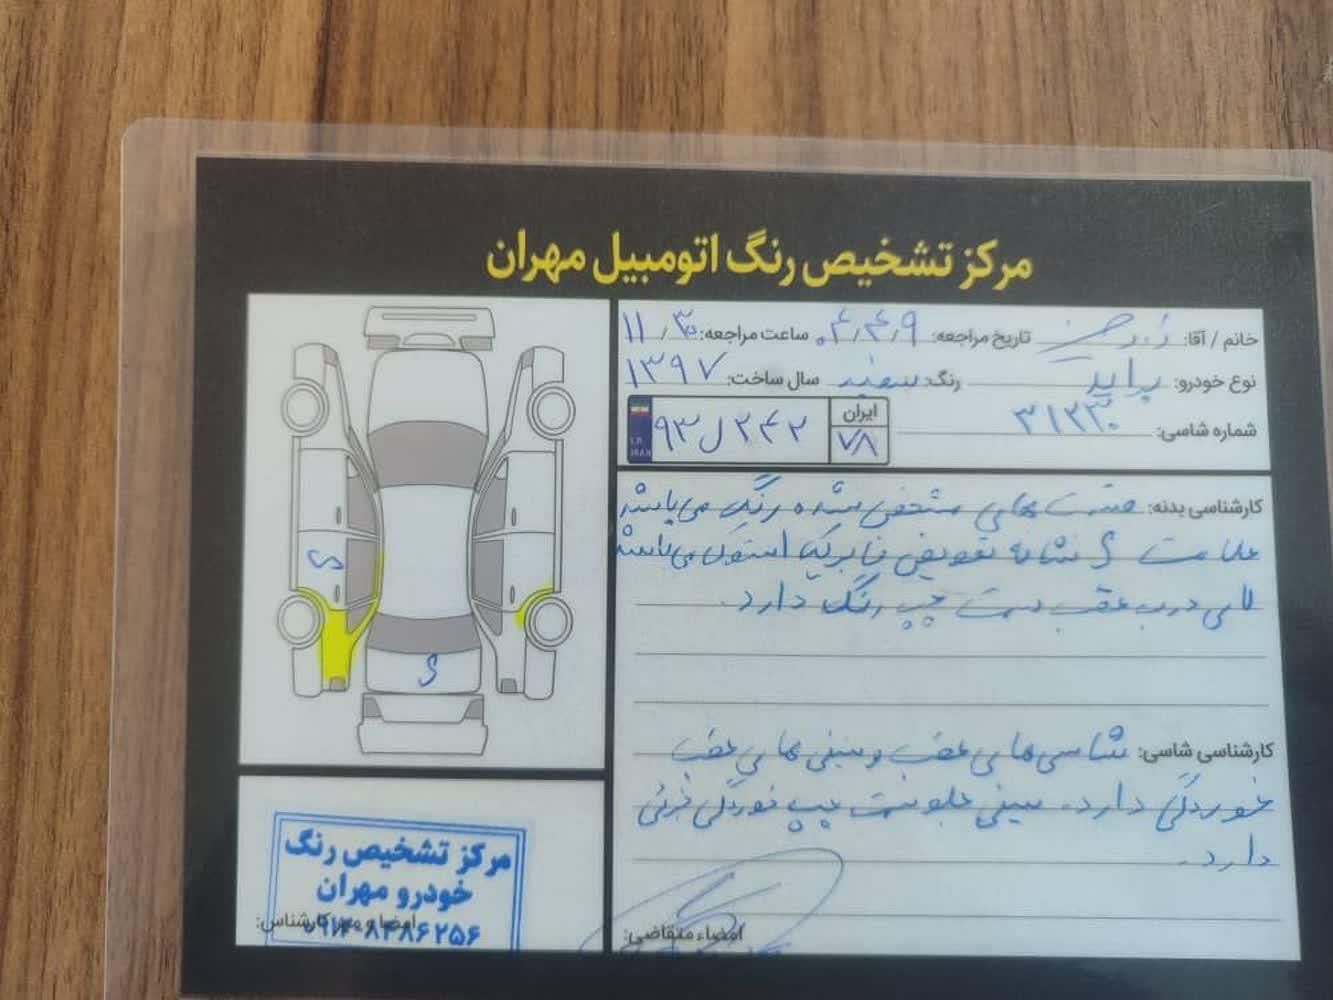 مرکز تشخیص رنگ اتومبیل مهران
خانم / آقا: تاریخ مراجعه: ۰۴٫۴٫۹ ساعت مراجعه: ۱۱٫۳۰
نوع خودرو: پراید رنگ: سفید سال ساخت: ۱۳۹۷
شماره شاسی: ۳۱۲۳۰
ایران
۷۸
۹۳ ل ۲۴۲
I.R.
IRAN
کارشناسی بدنه: قسمت های مشخص شده رنگ می باشد
علامت S نشانه تعویض فابریک استوک می باشد
لای درب عقب سمت چپ رنگ دارد.
S
S
کارشناسی شاسی: شاسی های عقب و سینی های عقب
خوردگی دارد. سینی جلو سمت چپ خوردگی جزئی
دارد.
مرکز تشخیص رنگ
خودرو مهران
امضا و مهر کارشناس:
امضاء متقاضی: